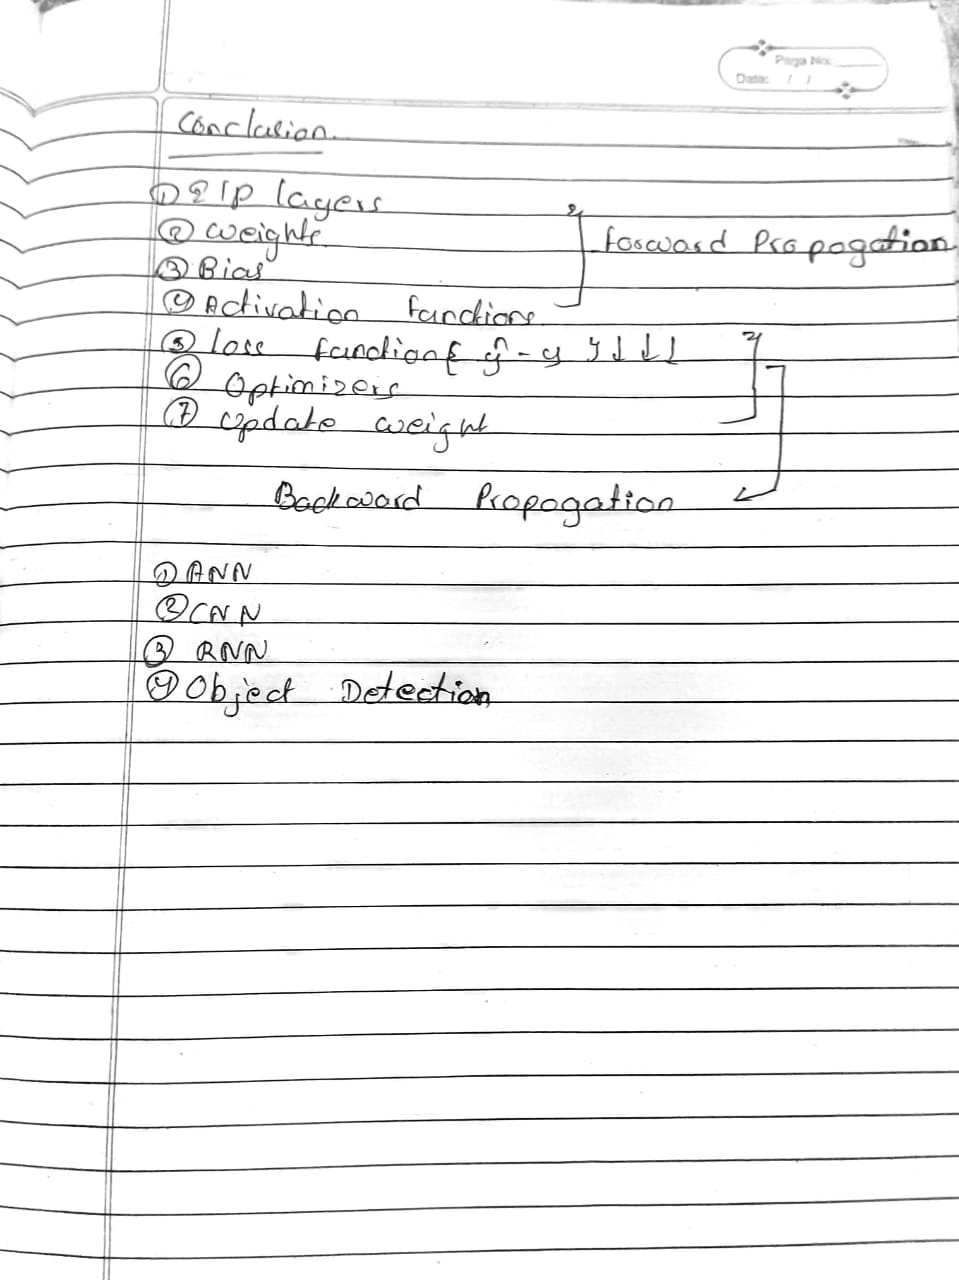 Page No.
Date: / /
Conclusion.
① I/p layers
② weights
③ Bias
forward Propogation
④ Activation functions
⑤ loss function { ŷ - y } ↓ ↓ ↓
⑥ Optimizers
⑦ Update weight
Backward Propogation
① ANN
② CNN
③ RNN
④ Object Detection